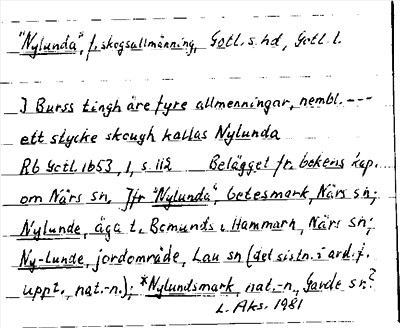 "Nylunda", f. skogsallmänning, Gotl. s. hd, Gotl. l.
I Burss tingh äre fyre allmenningar, nembl. ---
ett stycke skough kallas Nylunda
Rb Gotl. 1653, 1, s. 112 Belägget fr. bokens kap.
om Närs sn. Jfr "Nylunda", betesmark, Närs sn;
Nylunde, äga t. Bomunds i Hammarn, Närs sn;
Ny-lunde, jordområde, Lau sn (det sistn. i ard. f.
uppt., nat.-n.); *Nylundsmark, nat.-n., Garde sn?
L. Aks. 1981